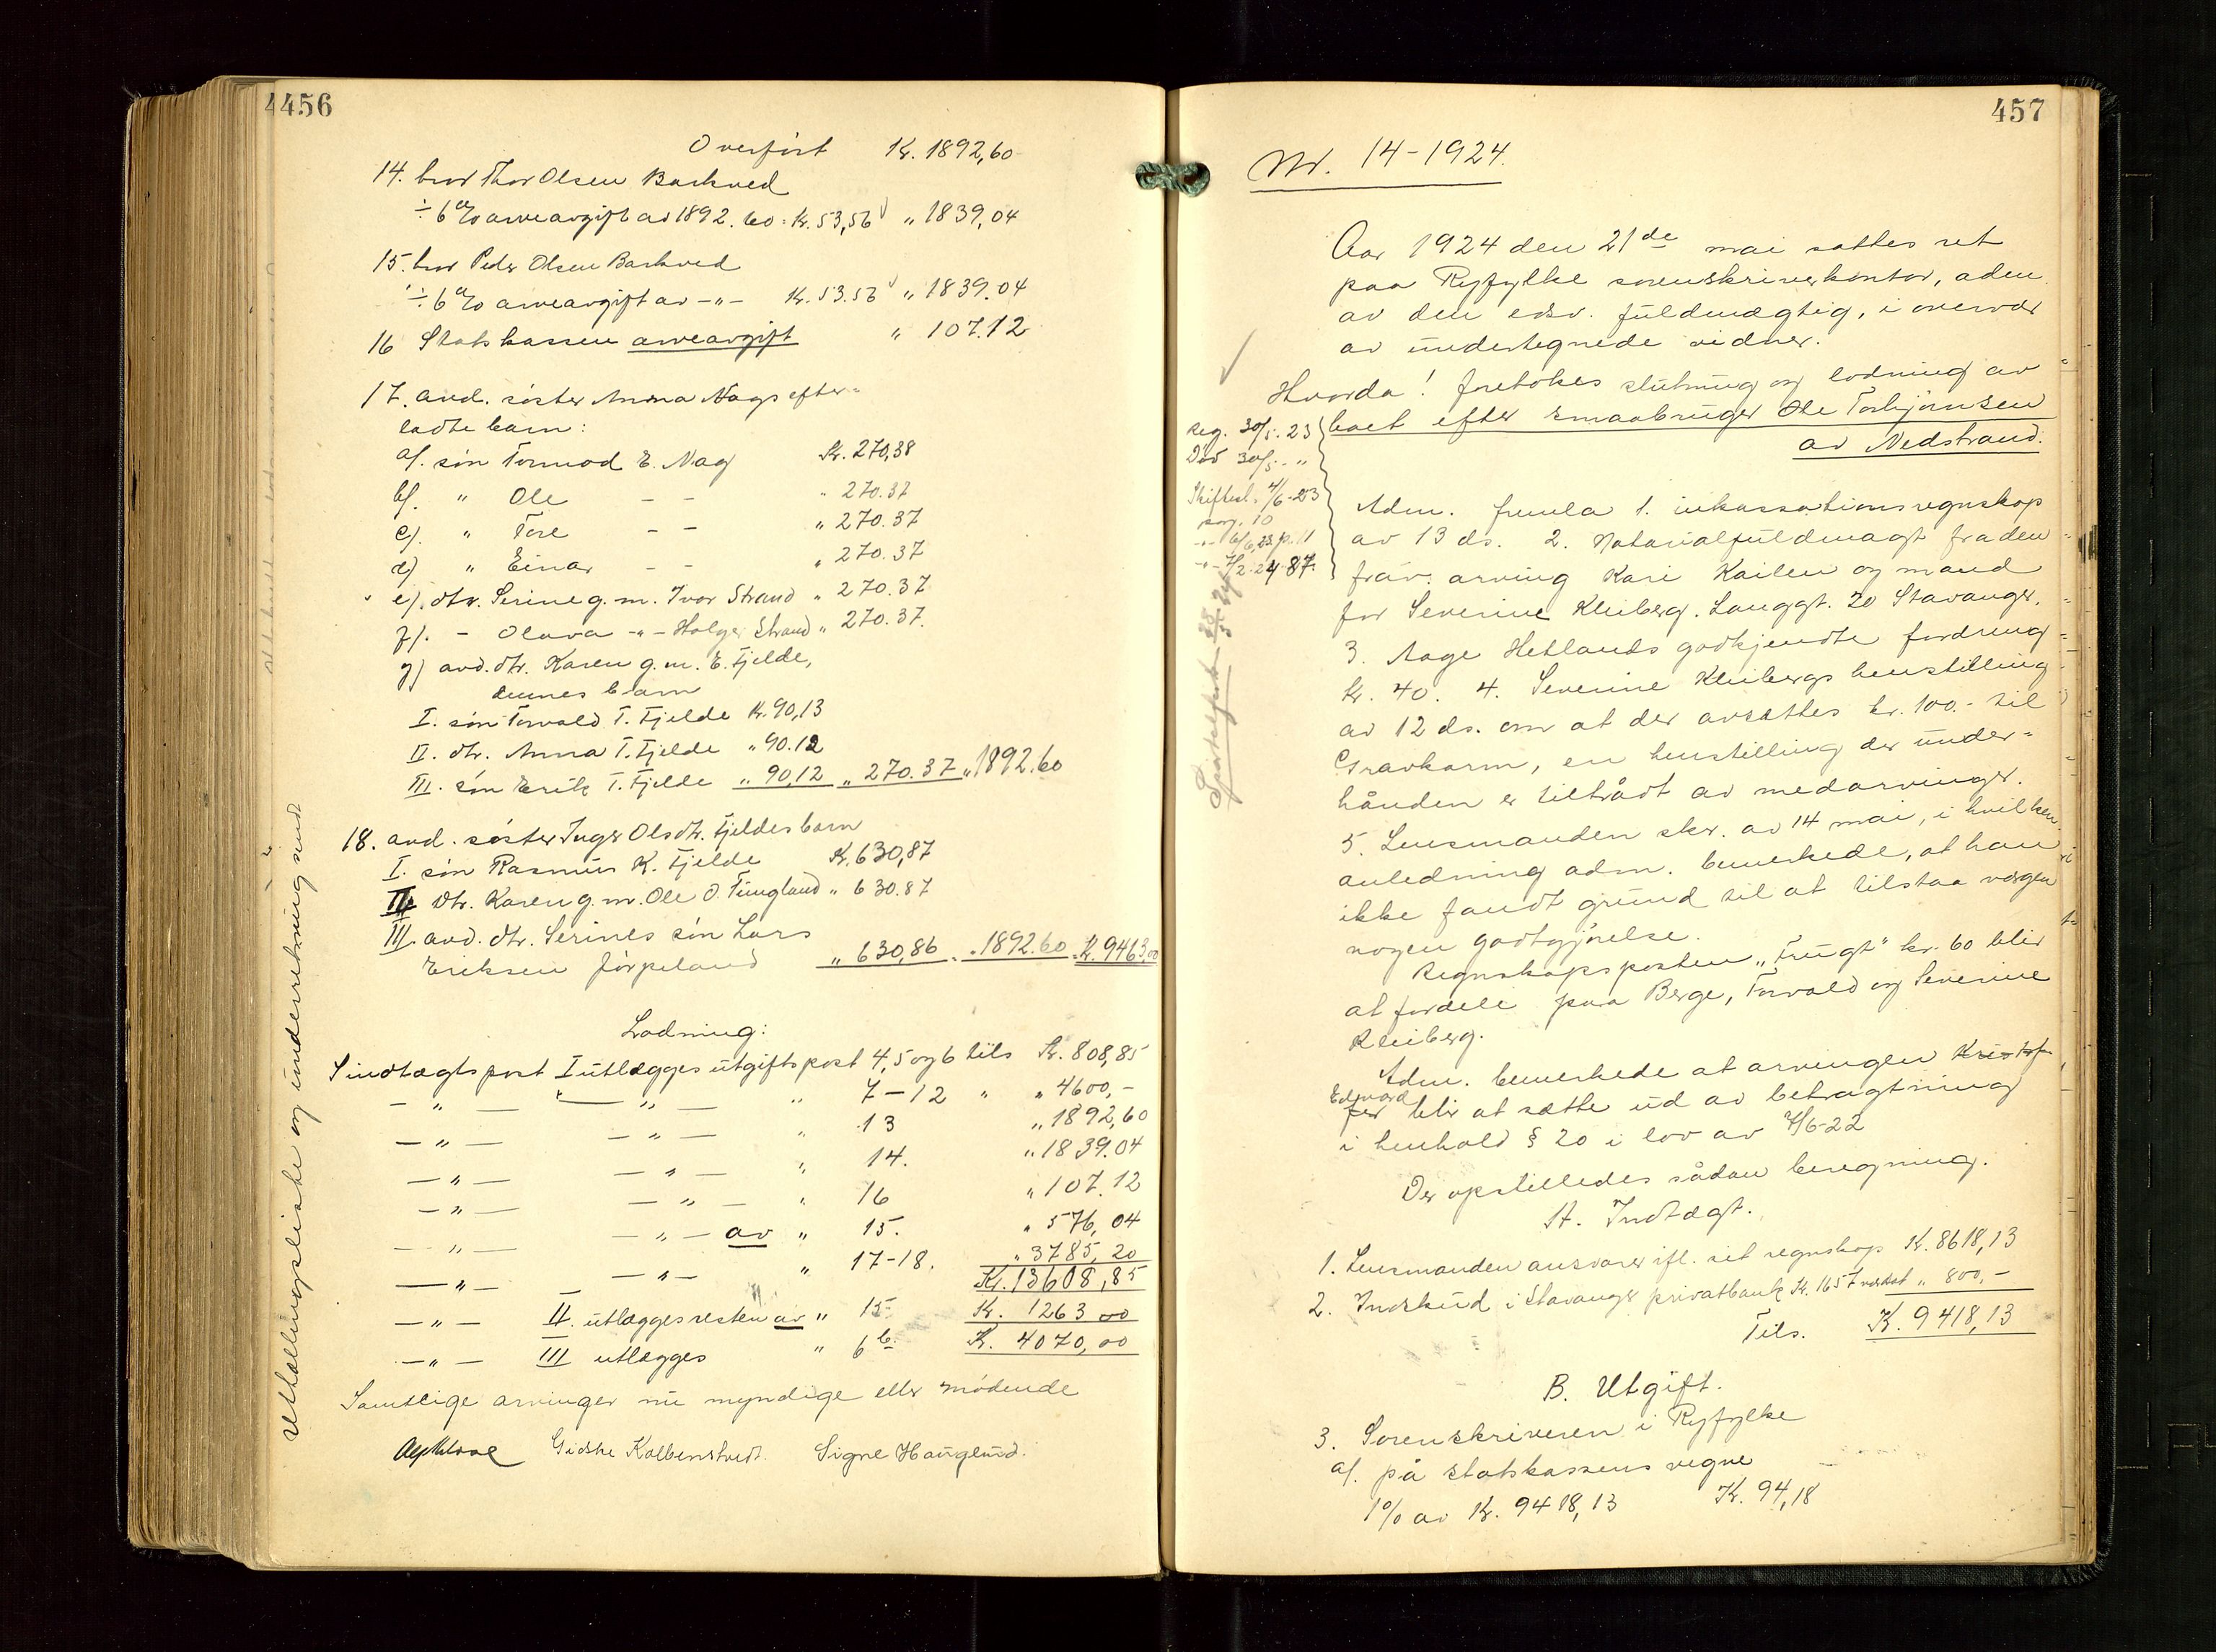 4456
Overført Kr. 1892,60
14. bror Thor Olsen Barkved
÷ 6% arveavgift av 1892.60 = Kr. 53,56 " 1839,04
15. bror Peder Olsen Barkved
÷ 6% arveavgift av -"- Kr. 53.56 " 1839.04
16 Statskassen arveavgift " 107.12
17. avd. søster Anna Nags efter-
ladte barn:
a/. søn Tormod E. Nag Kr. 270,38
b/. " Ole - - " 270.37
c/. " Tore - - " 270.37
d) " Einar - - " 270.37
e/. dtr. Serine g. m. Ivar Strand " 270.37
f/. - Olava -"- Holger Strand " 270.37.
g) avd. dtr. Karen g. m. E. Fjelde,
dennes barn
I. søn Torvald T. Fjelde Kr. 90,13
II. dtr. Anna T. Fjelde " 90.12
III. søn Erik T. Fjelde " 90,12 " 270.37 " 1892.60
18. avd. søster Inger Olsdtr. Fjeldes barn
I. søn Rasmus K. Fjelde Kr. 630,87
II. dtr. Karen g. m. Ole O. Tungland " 630.87
III. avd. dtr. Serines søn Lars
Eriksen Jørpeland " 630,86 " 1892.60 Kr. 9463,00
Lodning:
I indtægts post I utlægges utgifts post 4,5 og 6 tils Kr. 808,85
- " - - " - " 7-12 " " 4600,-
- " - - " - " 13 " 1892,60
- " - - " - " 14. " 1839.04
- " - - " - " 16 " 107.12
- " - - " - av " 15. " 576,04
- " - - " - " 17-18. " 3785,20
Kr. 13608,85
- " - II. utlægges resten av " 15- Kr. 1263 00
- " - III utlægges " 6 b. Kr. 4070,00
Samtlige arvinger nu myndige eller mødende
Gidske Kolbenstvedt. Signe Hauglund.
Utlodningsliste og underretning send
457
Nr. 14-1924.
Aar 1924 den 21de mai sattes ret
paa Ryfylke sorenskriverkontor, adm.
av den edsv. fuldmægtig, i overvær
av undertegnede vidner.
Hvorda! foretokes slutning og lodning av
boet efter smaabruger Ole Torbjørnsen
av Nedstrand.
Reg. 30/5. 23
Død 30/5. "
Skiftesl. 4/6-23
sorg. 10
-"- 6/6.23 p. 11
-"- 7/2-24 87.
Adm. fremla 1. inkassationsregnskap
av 13 ds. 2. Notarialfuldmagt fra den
frav. arving Kari Kailen og mand
for Severine Kleiberg. Langgt. 20 Stavanger.
3. Aage Hetlands godkjendte fordring
kr. 40. 4. Severine Kleibergs henstilling
av 12 ds. om at der avsættes kr. 100.- til
Gravkarm, en henstilling der under-
hånden er tiltrådt av medarvinger.
5. Lensmanden skr. av 14 mai, i hvilken
anledning adm. bemerkede, at han
ikke fandt grund til at tilstaa værgen
nogen godtgjørelse.
Regnskapsposten "Frugt" kr. 60 blir
at fordele paa Berge, Torvald og Severine
Kleiberg.
Adm. bemerkede at arvingen Kristof-
fer Edvard blir at sætte ud av betragtning
i henhold § 20 i lov av 7/6-22
Der opstilledes sådan beregning.
A. Indtægt.
1. Lensmanden ansvarer ifl. sit regnskap Kr. 8618,13
2. Indskud i Stavanger privatbank Kr. 1657 værdsat " 800,-
Tils. Kr. 9418,13
B. Utgift.
3. Sorenskriveren i Ryfylke
a/. på statskassens vegne
1% av Kr. 9418,13 Kr. 94,18